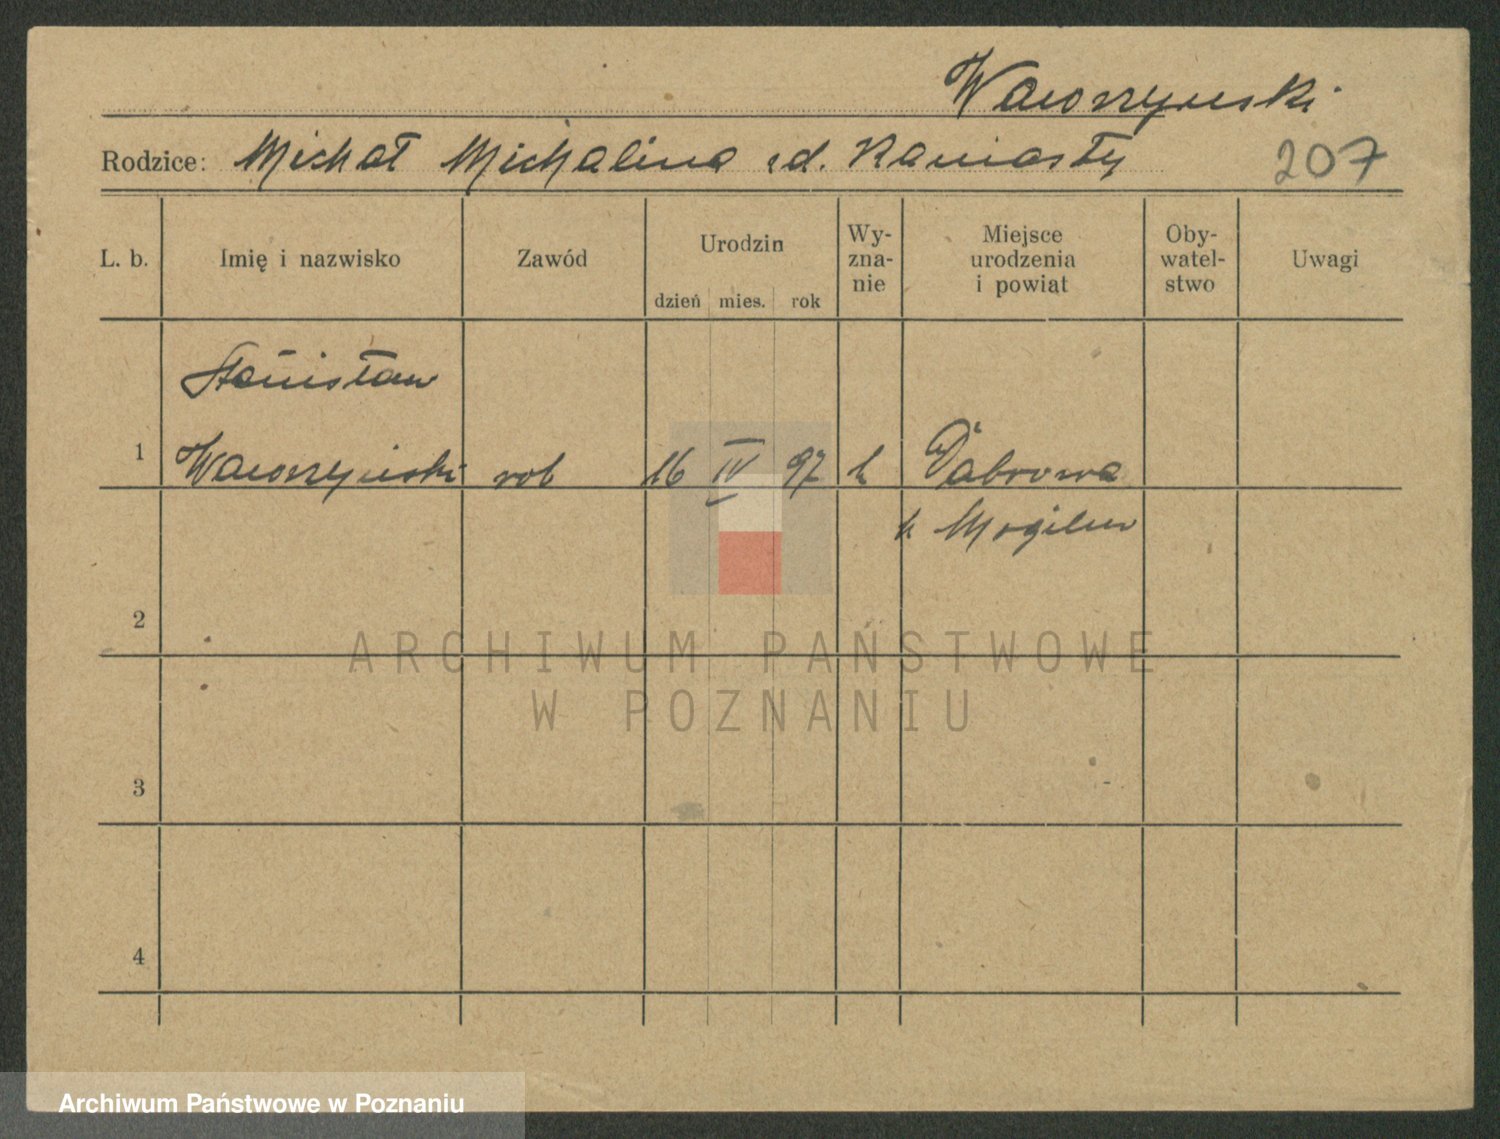 Wawrzyński
Rodzice: Michał Michalina zd. Kaniasty
207
L. b. Imię i nazwisko Zawód Urodzin dzień mies. rok Wy-zna-nie Miejsce urodzenia i powiat Oby-watel-stwo Uwagi
Stanisław
1 Wawrzyński rob 16 IV 97 k Dąbrowa
k Mogilno
2
3
4
ARCHIWUM PAŃSTWOWE
W POZNANIU
Archiwum Państwowe w Poznaniu